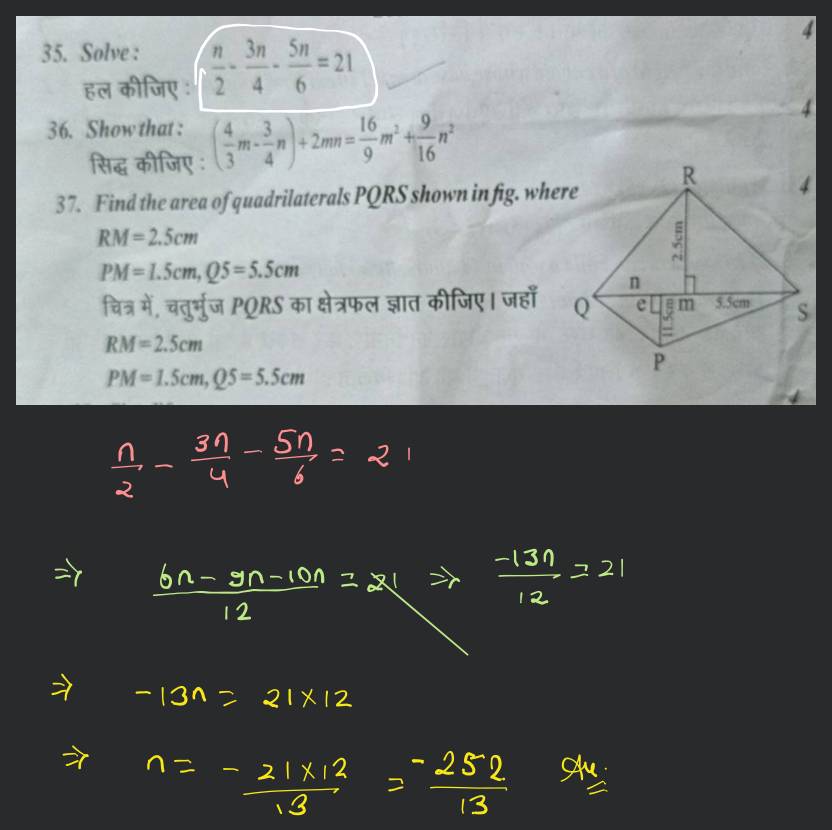 35. Solve: n/2 - 3n/4 - 5n/6 = 21
हल कीजिए :
36. Show that: (4/3 m - 3/4 n) + 2mn = 16/9 m² + 9/16 n²
सिद्ध कीजिए :
37. Find the area of quadrilaterals PQRS shown in fig. where
RM = 2.5cm
PM = 1.5cm, Q5 = 5.5cm
चित्र में, चतुर्भुज PQRS का क्षेत्रफल ज्ञात कीजिए। जहाँ
RM = 2.5cm
PM = 1.5cm, Q5 = 5.5cm
4
4
4
4
R
2.5cm
n
Q e m 5.5cm S
1.5cm
P
n/2 - 3n/4 - 5n/6 = 21
⇒ (6n - 9n - 10n)/12 = 21 ⇒ -13n/12 = 21
⇒ -13n = 21×12
⇒ n = - 21×12/13 = -252/13